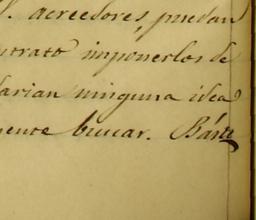 acreedores, puedan
ntrato imponerlos de
darian ninguna idea
mente buscar. Bást